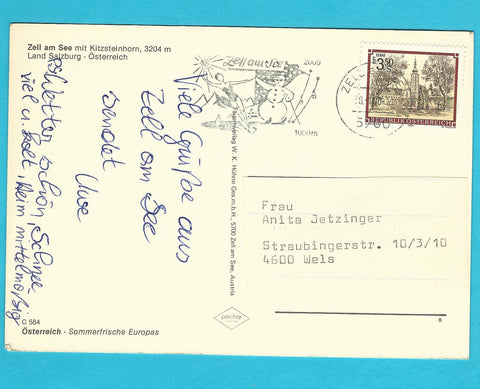 Zell am See mit Kitzsteinhorn, 3204 m
Land Salzburg - Österreich
Viele Grüße aus
Zell am See
sendet
Uwe
Wetter schön, Schnee
viel u.
mittelmäßig
C 584
Österreich - Sommerfrische Europas
Zell am See
2000
1000m
W. K. Hühne Ges.m.b.H., 5700 Zell am See, Austria
pechat
ZELL
5700
3.50
REPUBLIK ÖSTERREICH
Frau
Anita Jetzinger
Straubingerstr. 10/3/10
4600 Wels